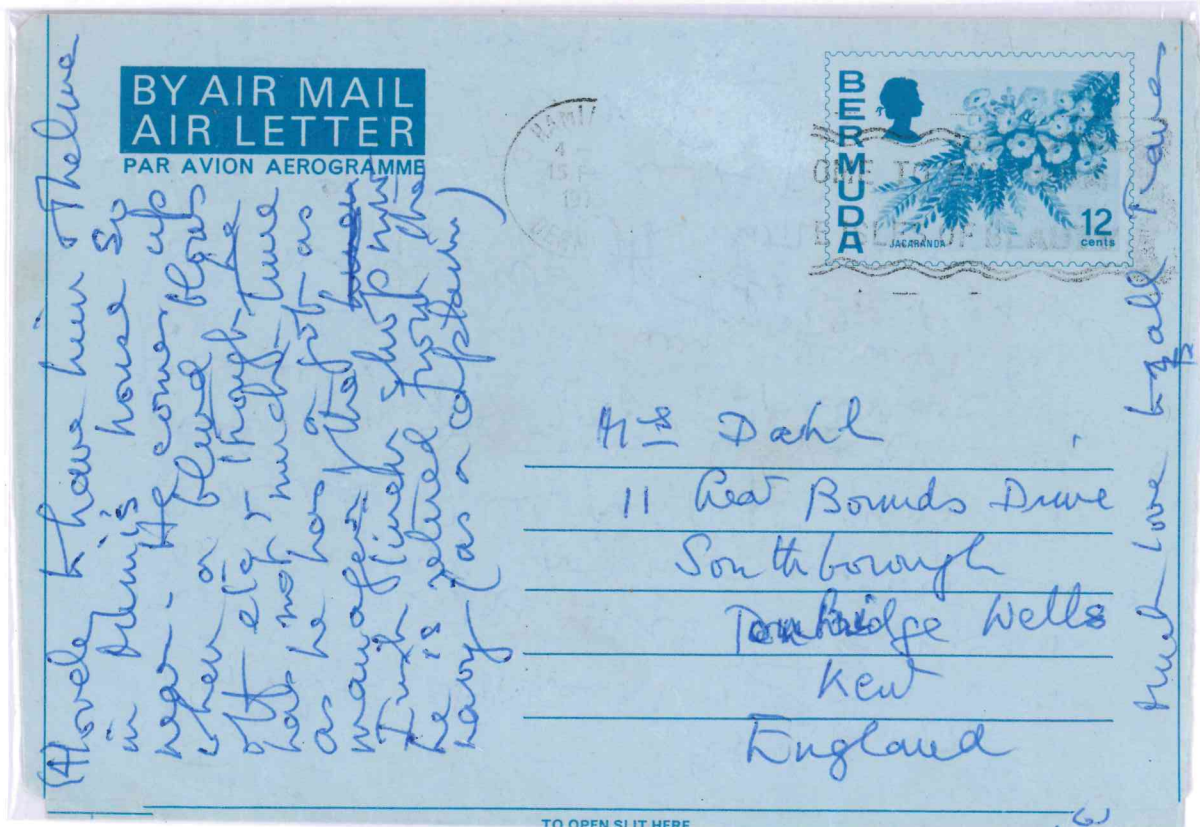 BY AIR MAIL
AIR LETTER
PAR AVION AEROGRAMME
BERMUDA
JACARANDA
12
cents
15
197
OF BEAU
Mrs Dahl
11 Great Bounds Drive
Southborough
Tonbridge Wells
Kent
England
(A lovely to have him Thelma
in house so
near. He comes up
when a fluid blows
off etc & though he
has not much time
as he has a job as
manager of the
lunch shop now
he is retired from the
navy (as a captain)
Much love to all yours
TO OPEN SLIT HERE